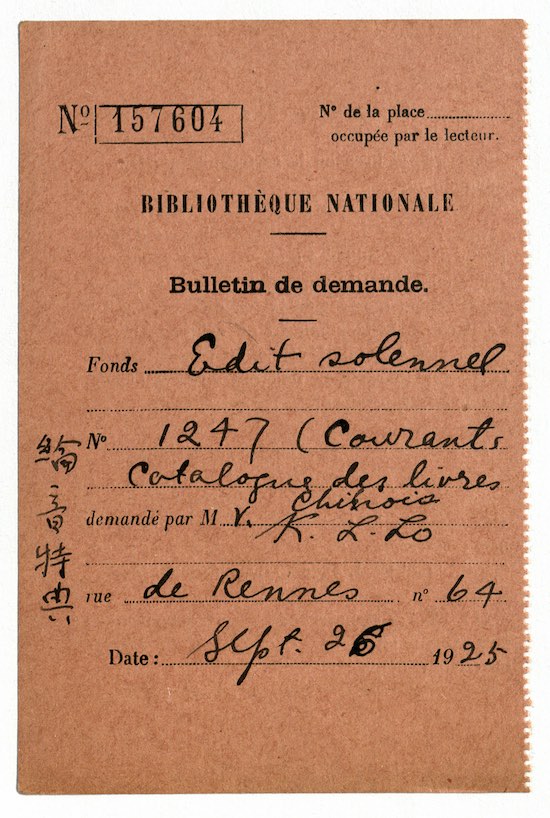 Nº 157604
N° de la place
occupée par le lecteur.
BIBLIOTHÈQUE NATIONALE
Bulletin de demande.
Fonds Edit solennel
N° 1247 (Courant:
Catalogue des livres
Chinois
demandé par M r. K. L. Lo
rue de Rennes n° 64
Date: Sept. 26 1925
綸音特典